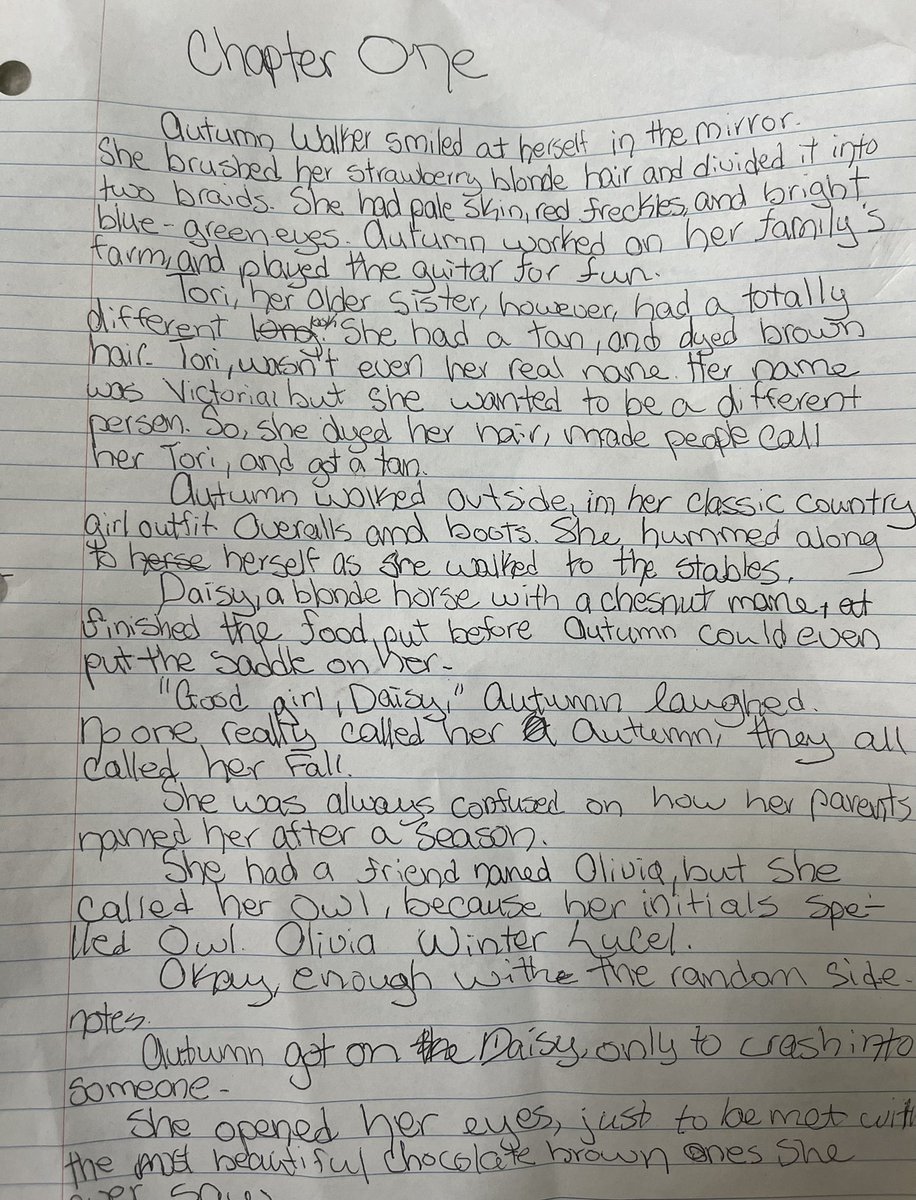 Chapter One
Autumn Walker smiled at herself in the mirror.
She brushed her strawberry blonde hair and divided it into
two braids. She had pale skin, red freckles, and bright
blue-green eyes. Autumn worked on her family's
farm, and played the guitar for fun.
Tori, her older sister, however, had a totally
different look. She had a tan, and dyed brown
hair. Tori, wasn't even her real name. Her name
was Victoria, but she wanted to be a different
person. So, she dyed her hair, made people call
her Tori, and got a tan.
Autumn walked outside, in her classic country
girl outfit. Overalls and boots. She hummed along
to herse herself as she walked to the stables.
Daisy, a blonde horse with a chesnut mane,
finished the food put before Autumn could even
put the saddle on her.
"Good girl, Daisy," Autumn laughed.
No one really called her Autumn, they all
called her Fall.
She was always confused on how her parents
named her after a season.
She had a friend named Olivia, but she
called her Owl, because her initials spe-
lled Owl. Olivia Winter Lucel.
Okay, enough with the random side-
notes.
Autumn got on the Daisy, only to crash into
someone.
She opened her eyes, just to be met with
the most beautiful chocolate brown ones she
ever saw